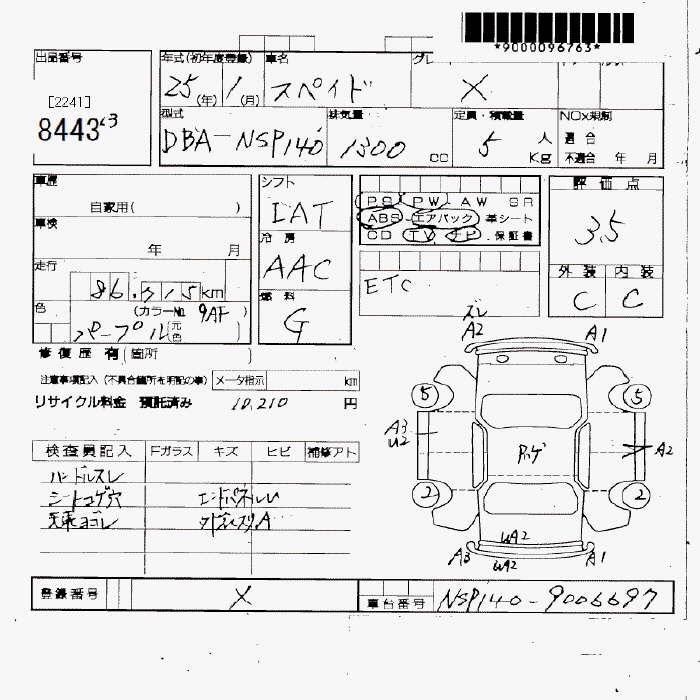 *9000096763*
出品番号
[2241]
8443
年式(初年度登録) 車名 グレ
25(年) 1(月) スペイド X
型式 排気量 定員・積載量 NOx規制
DBA-NSP140 1300 cc 5 人 Kg 適合 不適合 年 月
車歴 シフト 評価点
自家用( ) IAT PS PW AW SR 3.5
車検 年 月 冷房 ABS エアバック 革シート
AAC CD TV ナビ 保証書
走行 外装 内装
km ETC C C
色 (カラーNo. 9AF) 燃料
パープル (元色 ) G
修復歴 有 (箇所
注意事項記入(不具合箇所を明記の事) メータ指示 km
リサイクル料金 預託済み 10,210 円
ズレ
A2 A1
5 5
A3
U2 A2
2 2
UA2
A3 UA2 A1
検査員記入 Fガラス キズ ヒビ 補修アト
ハンドルスレ
シートコゲ穴 エンドパネルU
天張ヨゴレ
登録番号 X 車台番号 NSP140-9006697